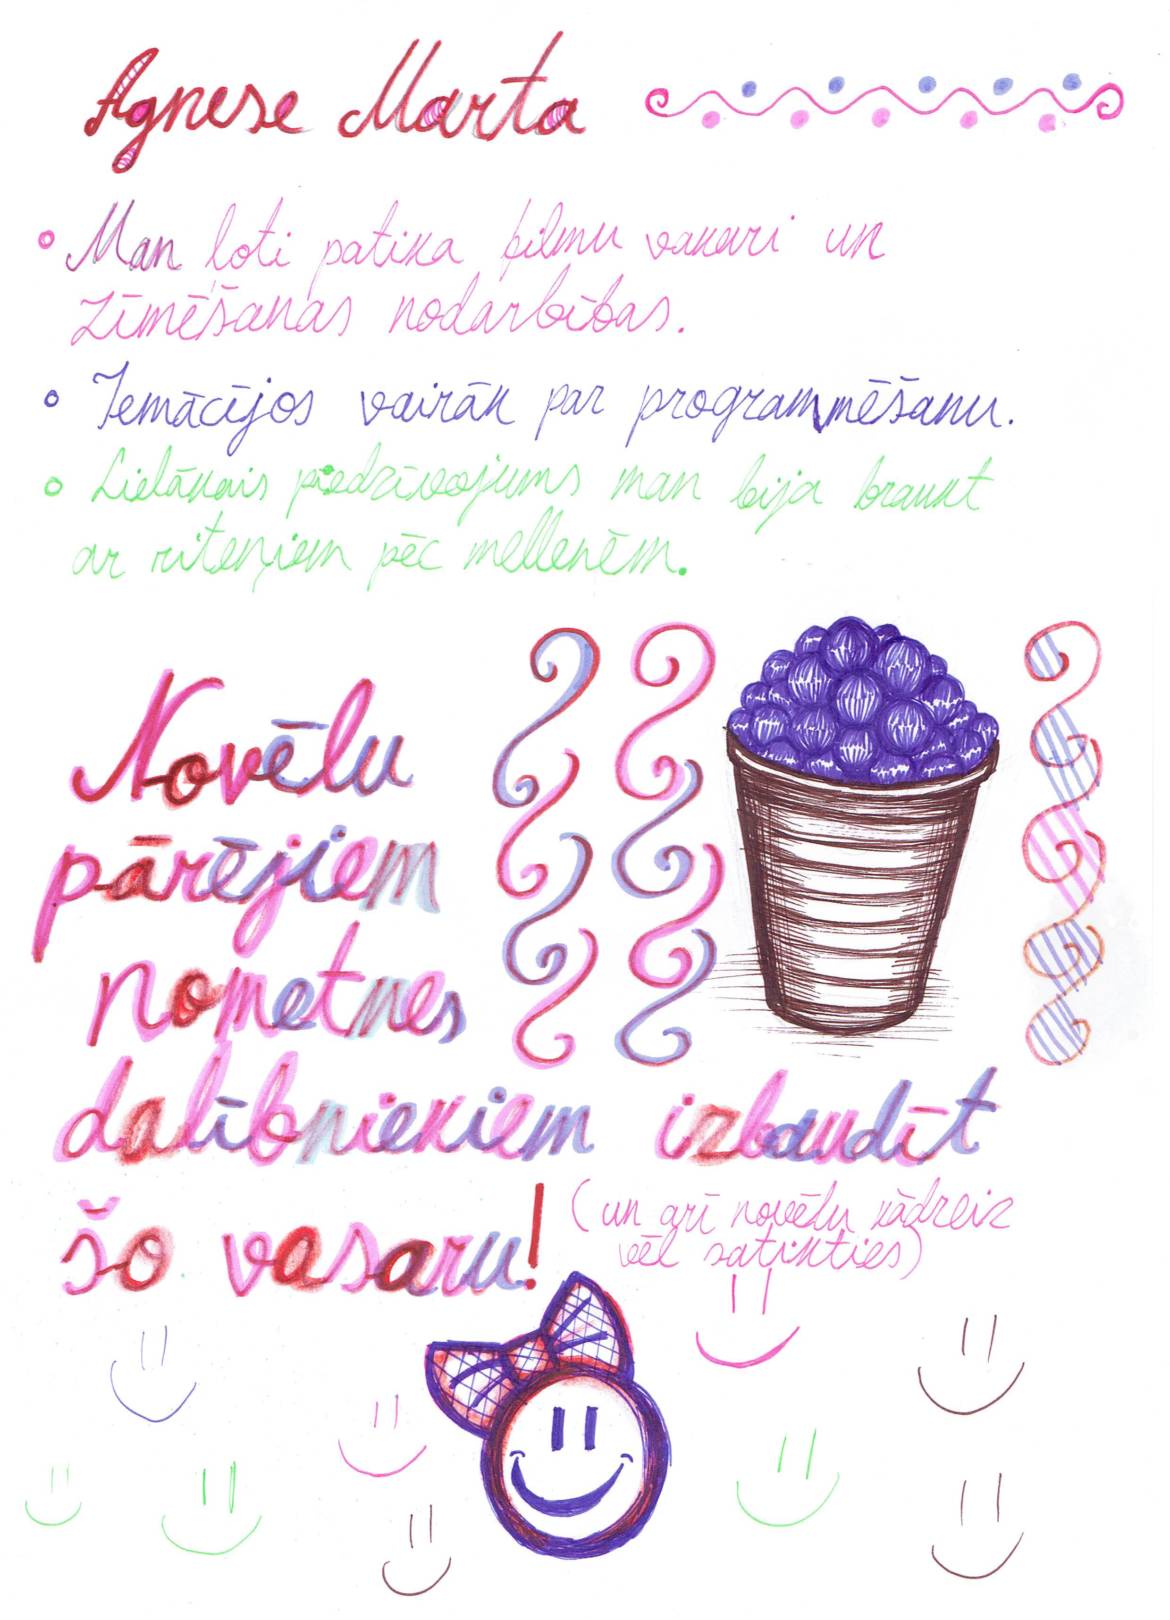 Agnese Marta
Man ļoti patika filmu vakari un
zīmēšanas nodarbības.
Iemācījos vairāk par programmēšanu.
Lielākais piedzīvojums man bija braukt
ar riteņiem pēc mellenēm.
Novēlu
pārējiem
nometnes
dalībniekiem izbaudīt
šo vasaru!
(un arī novēlu kādreiz
vēl satikties)